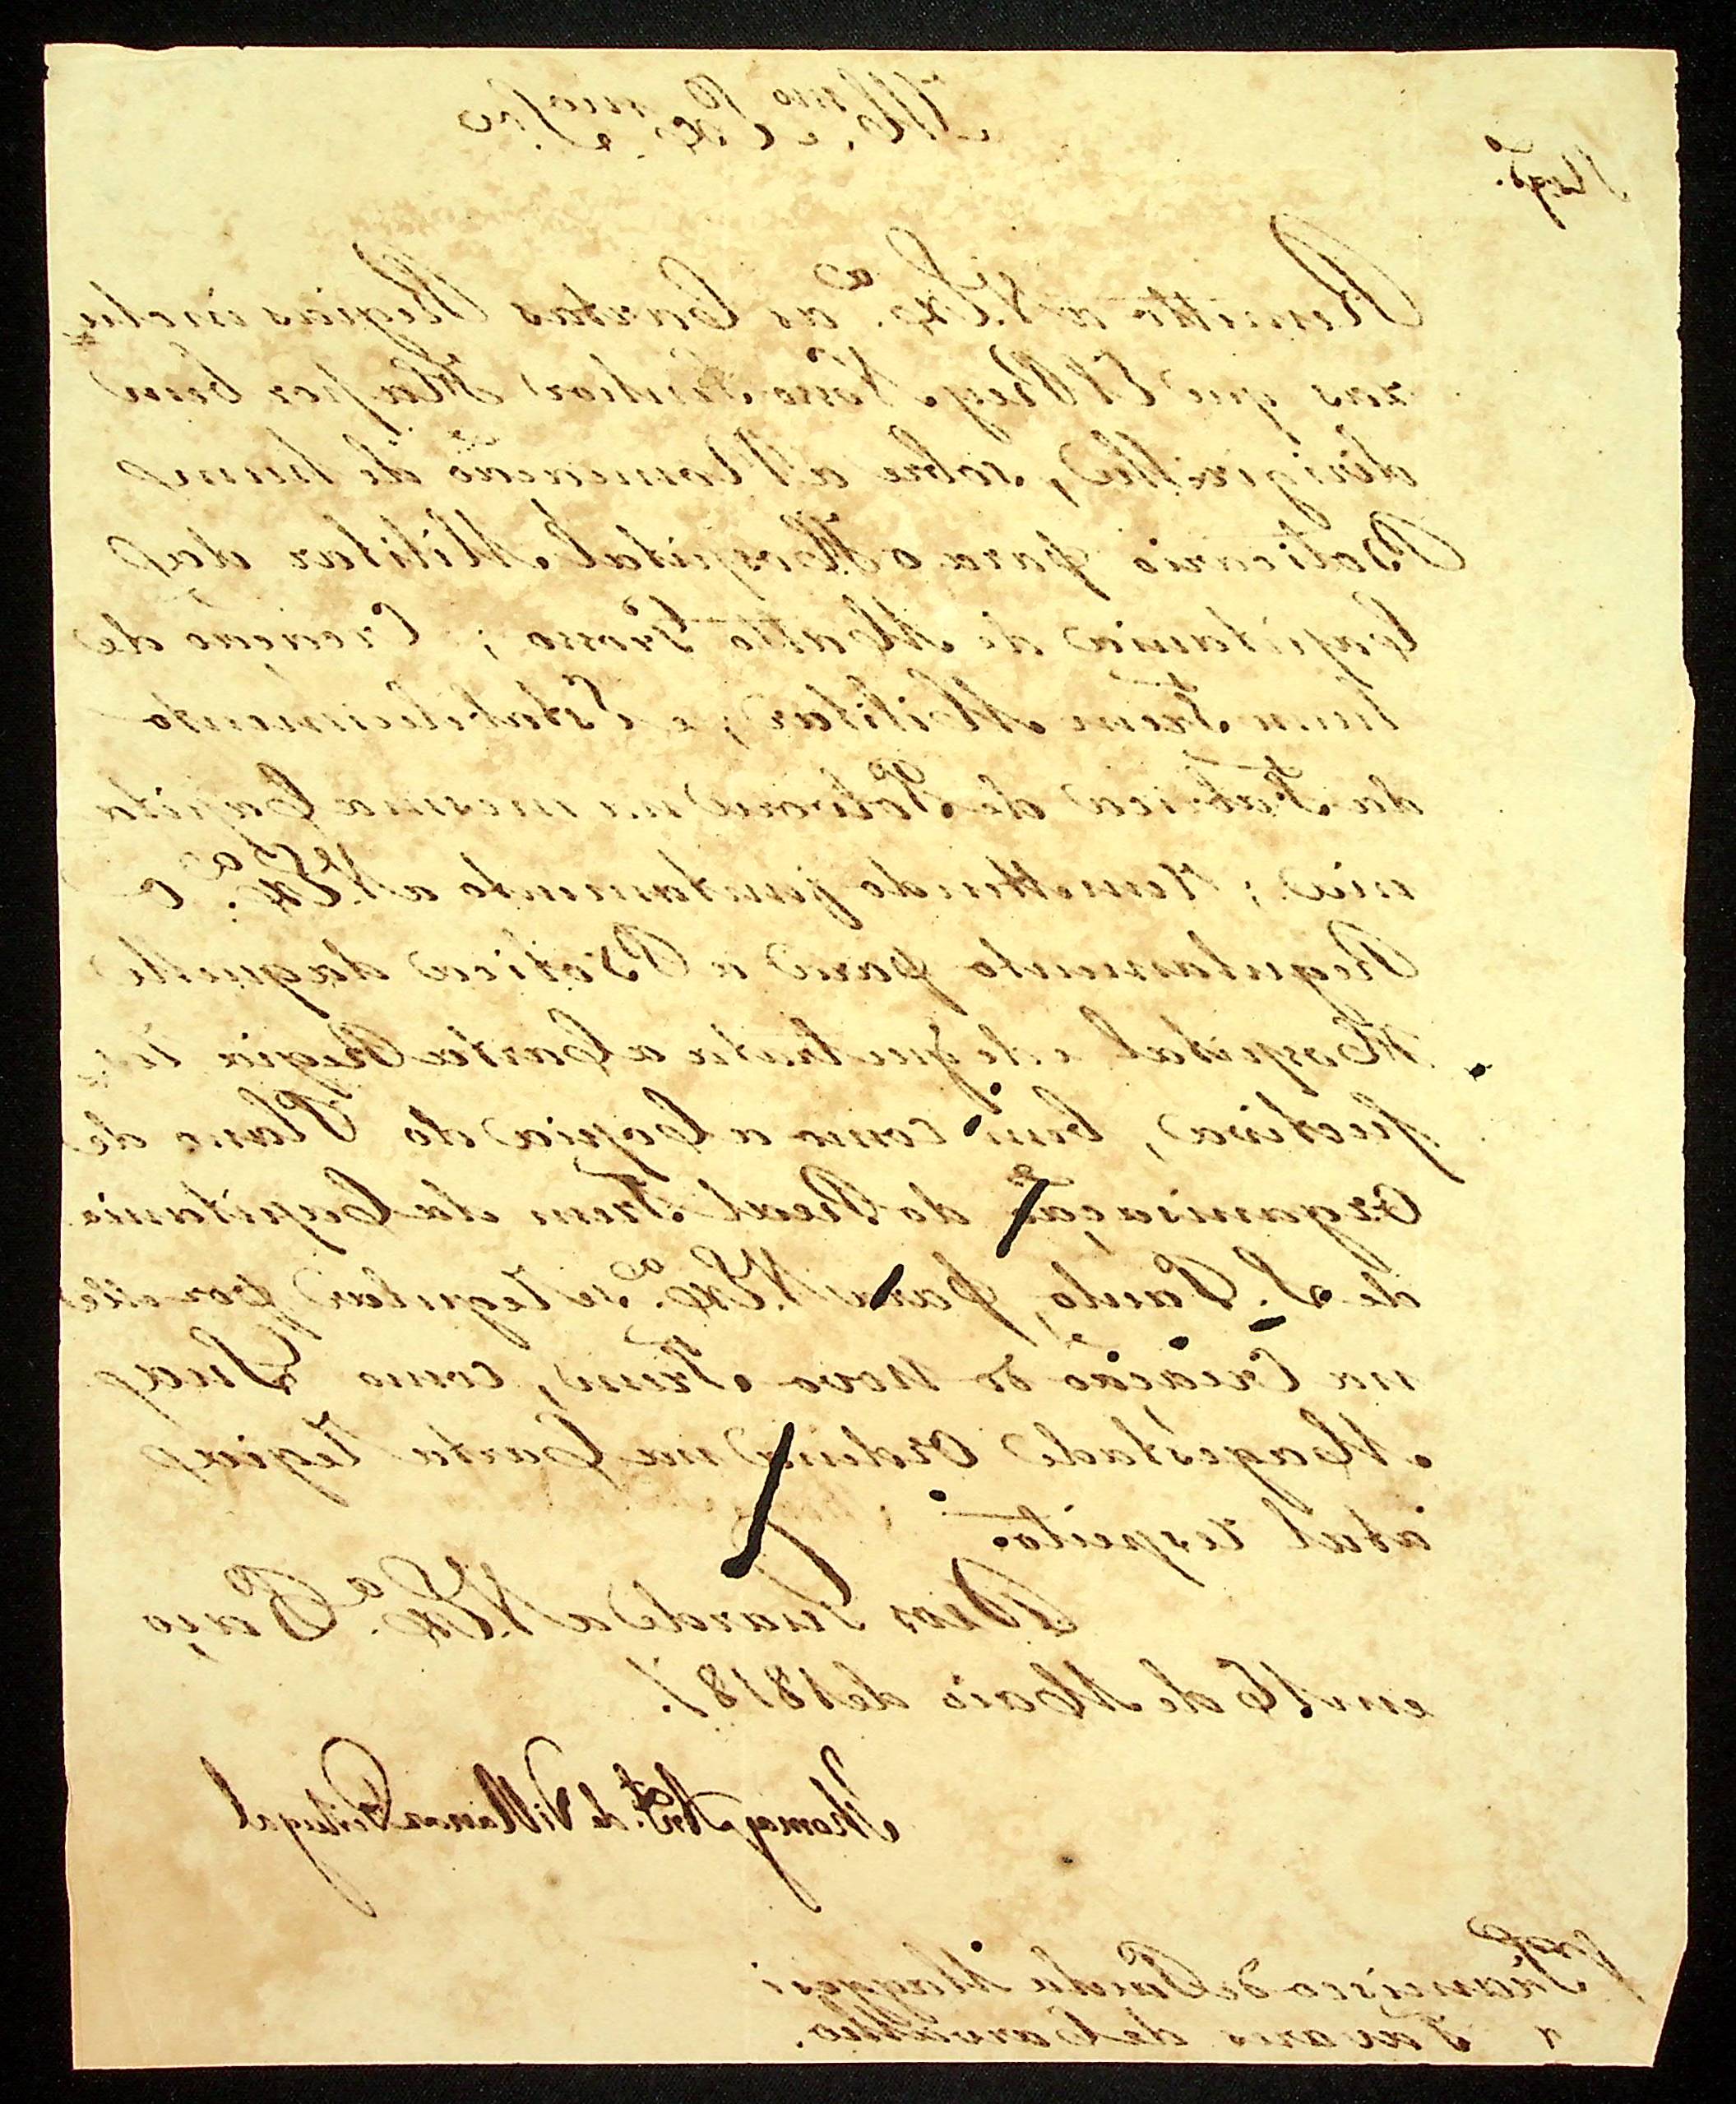 Ill.mo e Ex.mo Snr.
Reg.do
Remetto a V. Ex.a as Cartas Regias inclu
zas que ElRey Nosso Senhor Ha por bem
dirigir-lhe, sobre a Nomeação de hum
Boticario para o Hospital Militar da
Capitania de Matto Grosso; Creação de
hum Trem Militar, e Estabelecimento
da Fabrica de Polvora na mesma Capita
nia; remettendo juntamente a V. Ex.a o
Regulamento para a Botica daquelle
Hospital e de que trata a Carta Regia res
pectiva, bem como a Copia do Plano de
Organisação do Real Trem da Capitania
de S. Paulo, para V. Ex.a se regular por elle
na Creação do novo Trem, como Sua
Magestade Ordena na Carta Regia
a tal respeito.
Deos Guarde a V. Ex.a Paço
em 16 de Maio de 1818
Thomaz Ant.o de Villanova Portugal
Francisco de Paula Maggesi
Tavares de Carvalho.